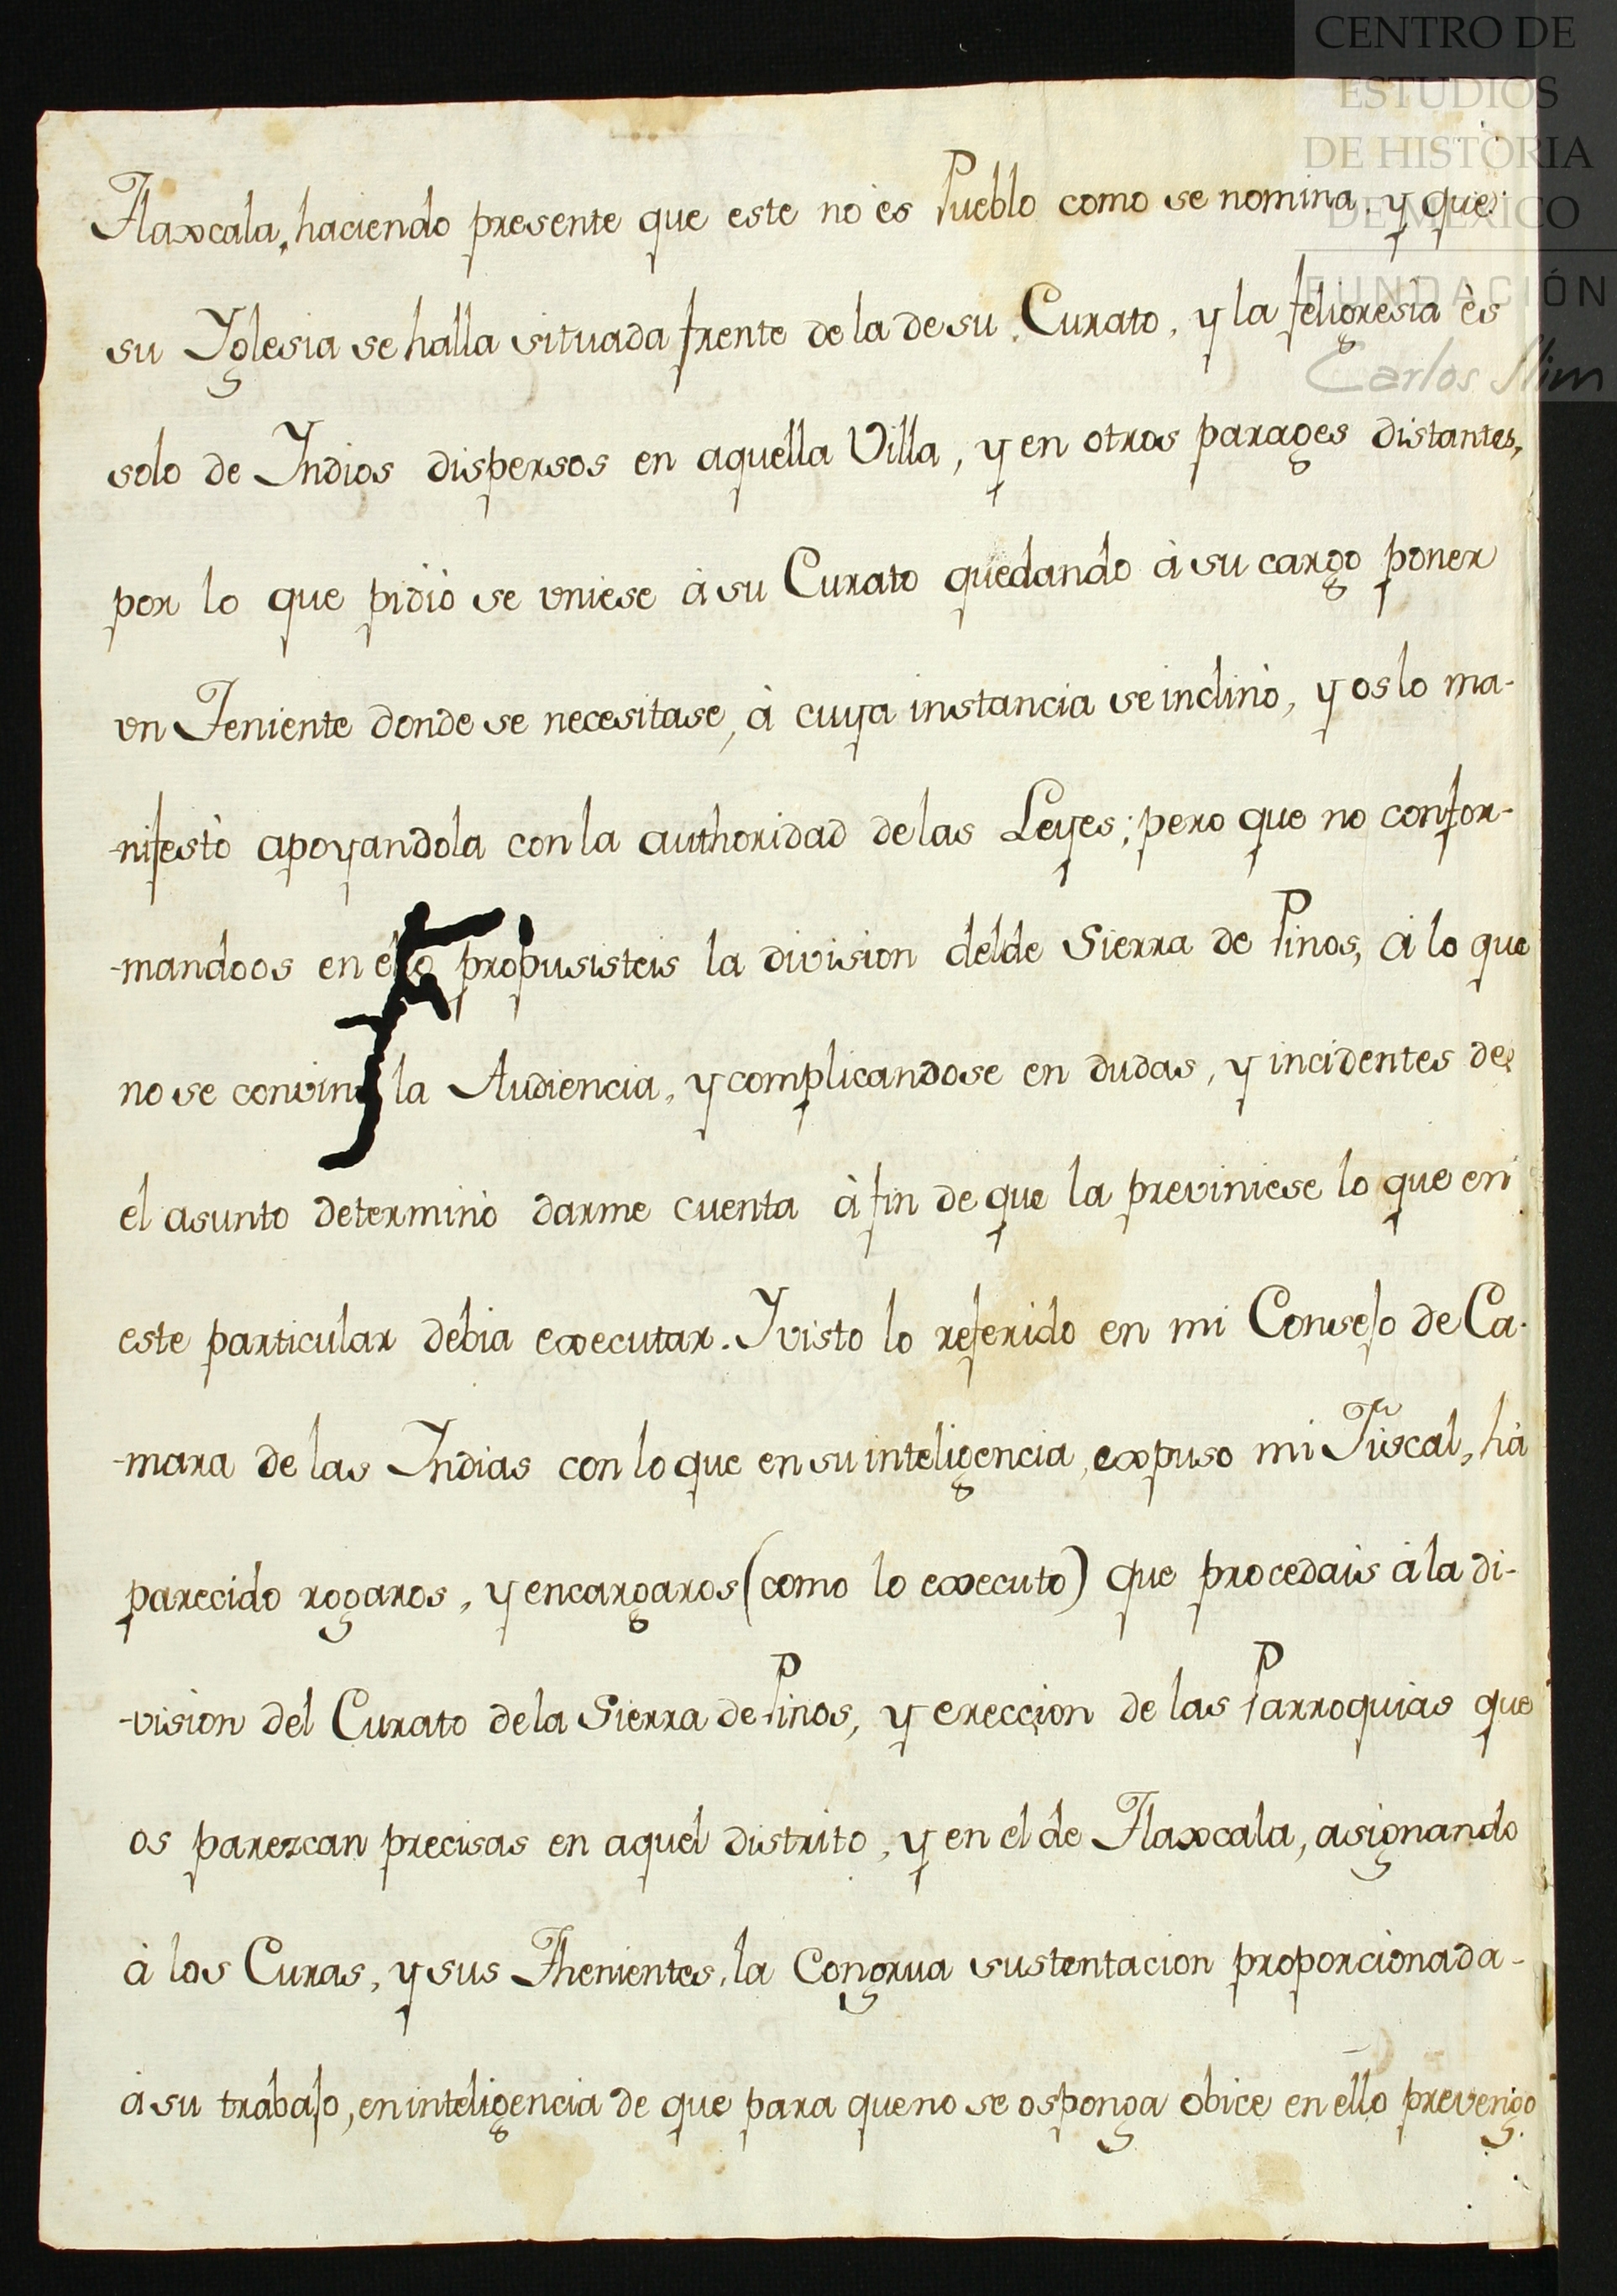 CENTRO DE
ESTUDIOS
DE HISTORIA
DE MÉXICO
FUNDACIÓN
Carlos Slim
Tlaxcala, haciendo presente que este no ès Pueblo como se nomina, y que
su Yglesia se halla situada frente de la de su Curato, y la feligresìa ès
solo de Indios dispersos en aquella Villa, y en otros parages distantes,
por lo que pidiò se vniese à su Curato quedando à su cargo poner
vn Teniente donde se necesitase, à cuya instancia se inclinò, y os lo ma-
-nifestò apoyandola con la authoridad de las Leyes; pero que no confor-
-mandoos en propusisteis la division del de Sierra de Pinos, à lo que
no se la Audiencia, y complicandose en dudas, y incidentes de
el asunto determinò darme cuenta à fin de que la previniese lo que en
este particular debia executar. Y visto lo referido en mi Consejo de Ca-
-mara de las Indias con lo que en su inteligencia, expuso mi Fiscal, hà
parecido rogaros, y encargaros (como lo executo) que procedais à la di-
-vision del Curato de la Sierra de Pinos, y ereccion de las Parroquias que
os parezcan precisas en aquel distrito, y en el de Tlaxcala, asignando
à los Curas, y sus Thenientes, la Congrua sustentacion proporcionada-
à su trabajo, en inteligencia de que para que no se os ponga obice en ello prevengo